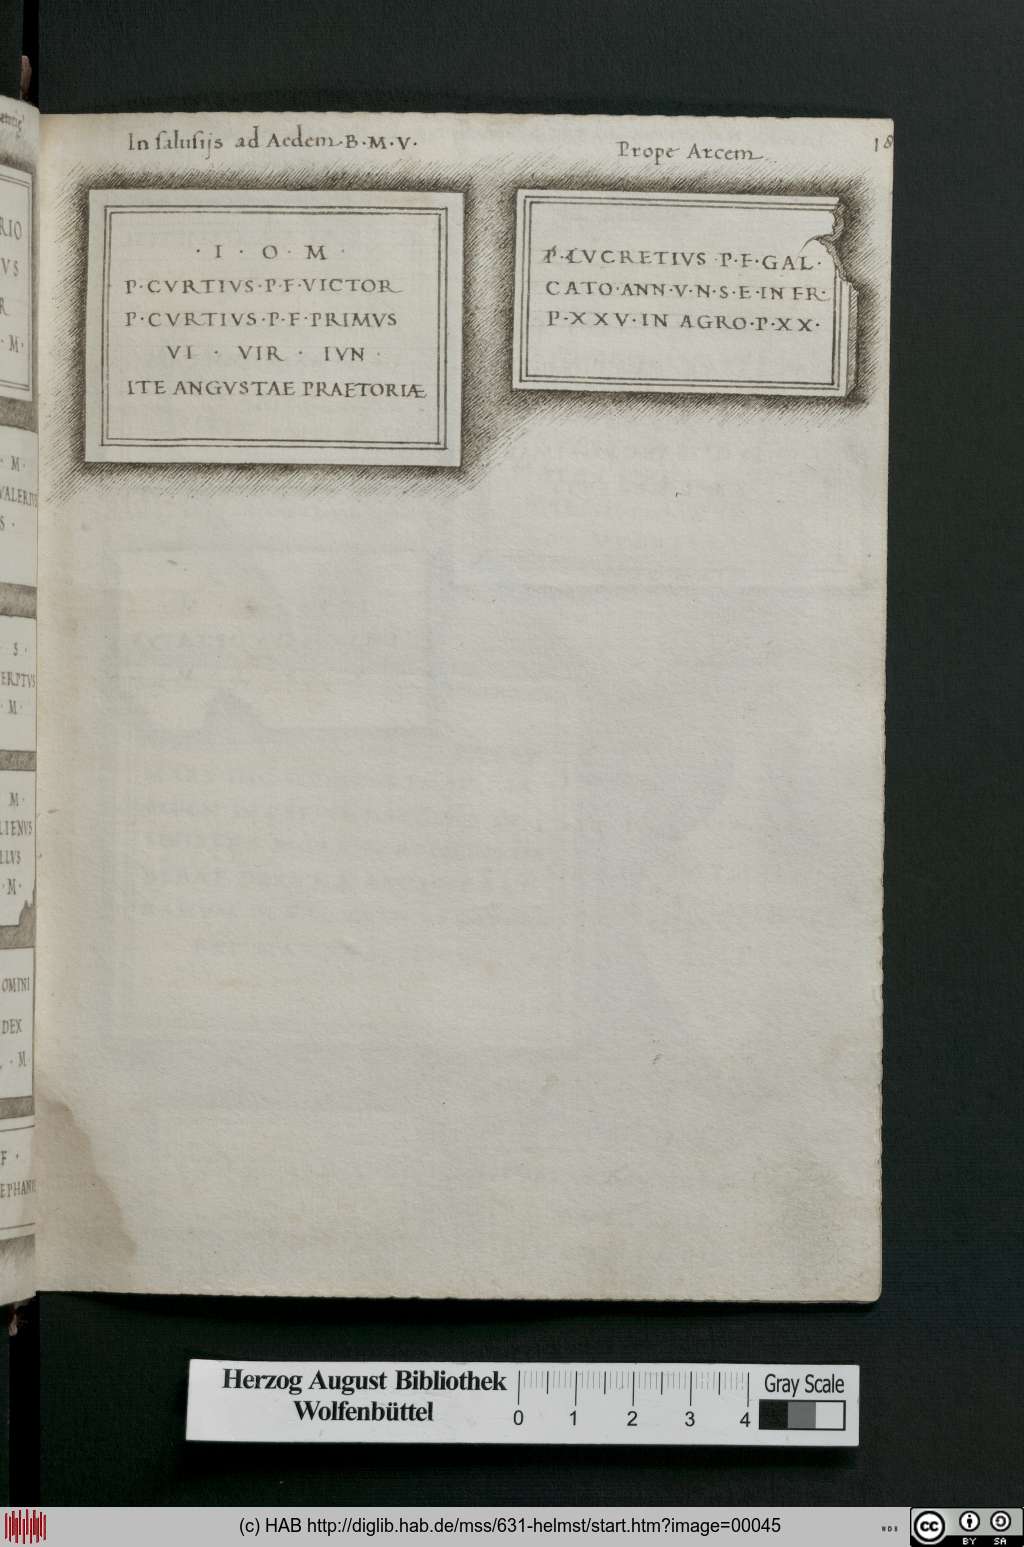 In salusijs ad Aedem B·M·V·
· I · O · M ·
P·CVRTIVS·P·F·VICTOR
P·CVRTIVS·P·F·PRIMVS
VI · VIR · IVN ·
ITE ANGVSTAE PRAETORIÆ
Prope Arcem
18
P·LVCRETIVS·P·F·GAL·
CATO·ANN·V·N·S·E·IN FR·
P·XXV·IN AGRO·P·XX·
RIO
VS
R
· M·
· M·
VALERIVS
S ·
· S ·
ERPTVS
· M ·
M ·
LIENVS
LLVS
· M ·
OMINI
DEX
· M ·
F ·
EPHANI
Herzog August Bibliothek
Wolfenbüttel
0 1 2 3 4
Gray Scale
(c) HAB http://diglib.hab.de/mss/631-helmst/start.htm?image=00045
WDB
cc
BY SA